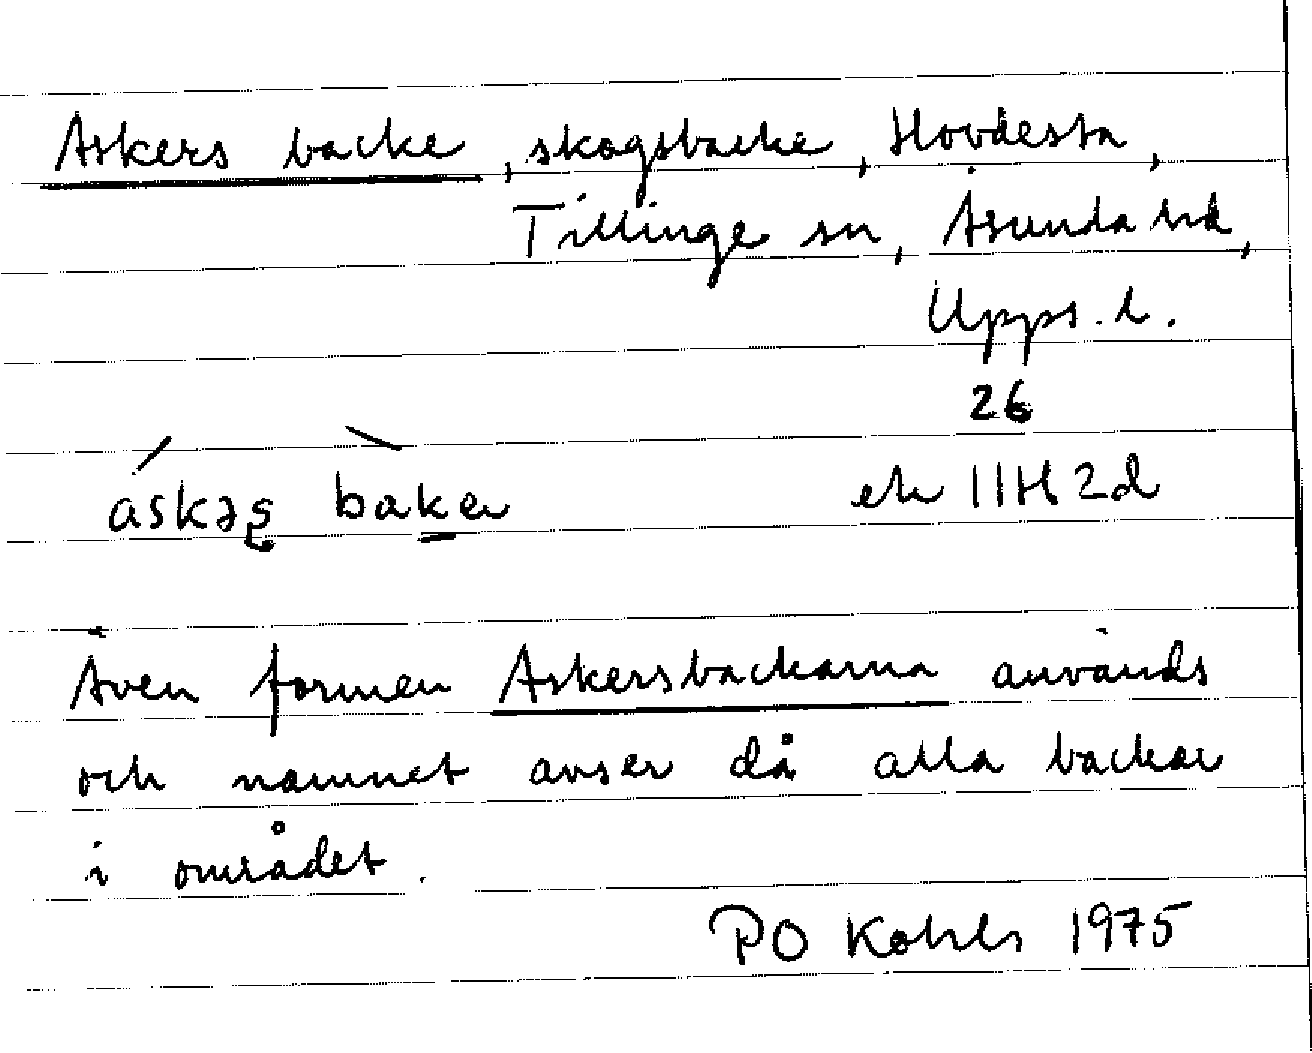 Askers backe, skogsbacke, Hovdesta,
Tillinge sn, Åsunda hd,
Upps. l.
26
áskəş bàker
ek 11H 2d
Även formen Askersbackarna används
och namnet avser då alla backar
i området.
PO Kohls 1975